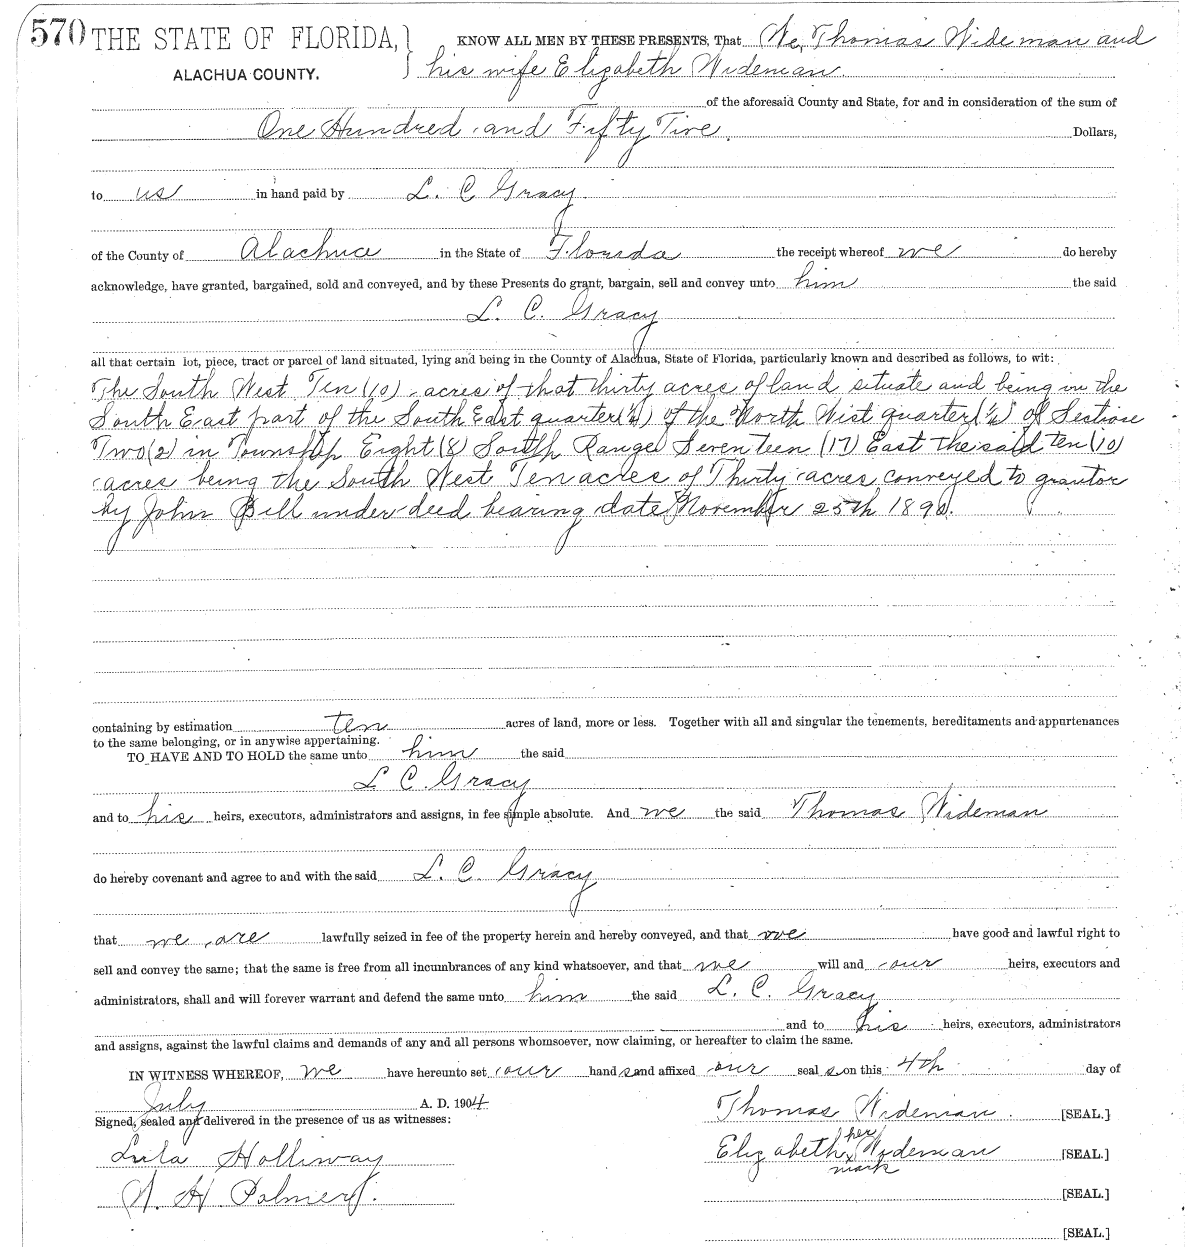 570 THE STATE OF FLORIDA,
ALACHUA COUNTY.
KNOW ALL MEN BY THESE PRESENTS, That We, Thomas Wideman and
his wife Elizabeth Wideman
of the aforesaid County and State, for and in consideration of the sum of
One Hundred and Fifty Five Dollars,
to us in hand paid by L. C. Gracy
of the County of Alachua in the State of Florida the receipt whereof we do hereby
acknowledge, have granted, bargained, sold and conveyed, and by these Presents do grant, bargain, sell and convey unto him the said
L. C. Gracy
all that certain lot, piece, tract or parcel of land situated, lying and being in the County of Alachua, State of Florida, particularly known and described as follows, to wit:
The South West Ten (10) acres of that thirty acres of land situate and being in the
South East part of the South East quarter (¼) of the North West quarter (¼) of Section
Two (2) in Township Eight (8) South Range Seventeen (17) East the said ten (10)
acres being the South West Ten acres of Thirty acres conveyed to grantor
by John Bill under deed bearing date November 25th 1890.
containing by estimation ten acres of land, more or less. Together with all and singular the tenements, hereditaments and appurtenances
to the same belonging, or in anywise appertaining.
TO HAVE AND TO HOLD the same unto him the said
L C. Gracy
and to his heirs, executors, administrators and assigns, in fee simple absolute. And we the said Thomas Wideman
do hereby covenant and agree to and with the said L. C. Gracy
that we are lawfully seized in fee of the property herein and hereby conveyed, and that we have good and lawful right to
sell and convey the same; that the same is free from all incumbrances of any kind whatsoever, and that we will and our heirs, executors and
administrators, shall and will forever warrant and defend the same unto him the said L. C. Gracy
and to his heirs, executors, administrators
and assigns, against the lawful claims and demands of any and all persons whomsoever, now claiming, or hereafter to claim the same.
IN WITNESS WHEREOF, we have hereunto set our hands and affixed our seals on this 4th day of
July A. D. 1904
Signed, sealed and delivered in the presence of us as witnesses:
Thomas Wideman [SEAL.]
Lula Holliway
Elizabeth her x mark Wydeman [SEAL.]
W. H. Palmer. [SEAL.]
[SEAL.]